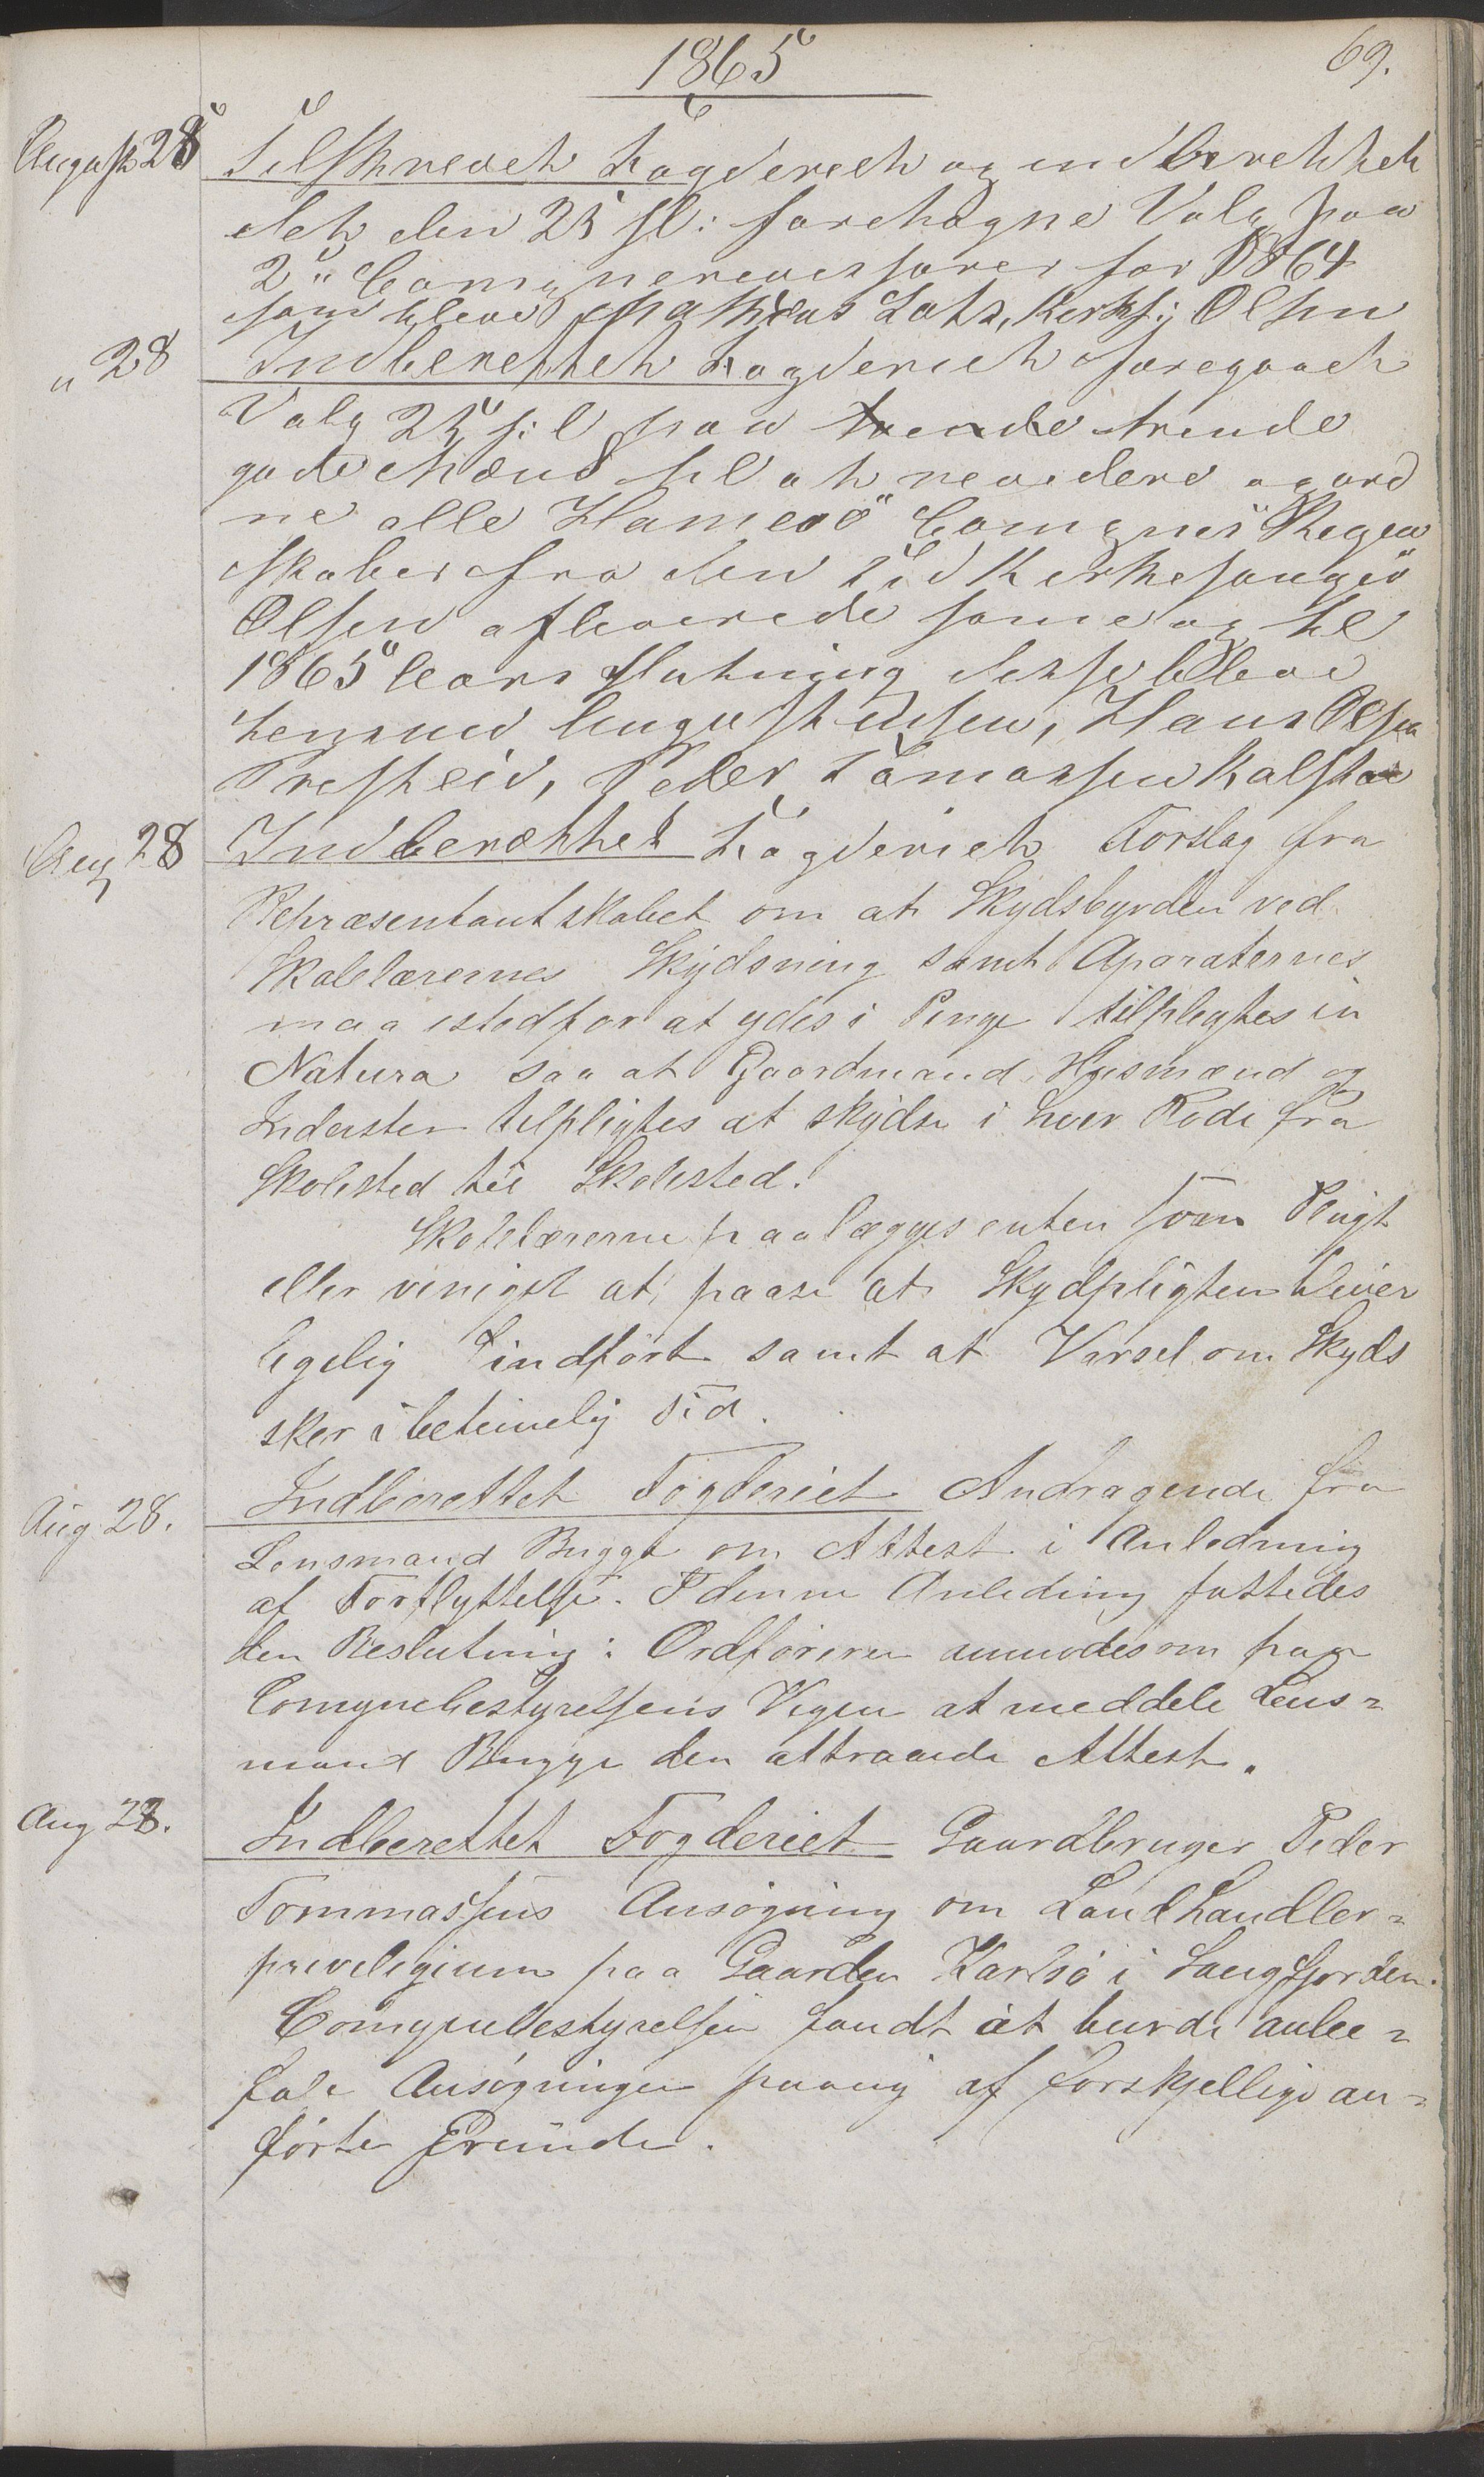 1865
69.
August 28
Tilskrevet Fogderiet og indberettet
det den 25 sl: foretagne Valg paa
2" Comynerevissorer for 1864
som bleve Mathias Lots, Kerks: Olsen
" 28
Indberettet Fogderiet foregaaet
Valg 25 s: l paa trende
gode Mænd til at revidere og ord
ne alle Hamerö Comynes Regen
skaber fra den Tid Kerkesanger
Olsen afleverede same og til
1865 Aars Slutning disse bleve
Augustinusen, Hans Olsen
Presteid, Peder Tomassen Kalsto
Aug 28
Indberættet Fogderiet Forslag fra
Repræsentantskabet om at Skydsbyrden ved
Skolelærernes Skydsning samt Aparaternes
maa istedfor at ydes i Penge tilpligtes in
Natura saa at Gaardmænd Husmænd og
Inderster tilpligtes at skydse i hver Rode fra
Skolested til Skolested.
Skolelærerne paalægges enten som Pligt
eller at paase at Skydspligten bliver
ligelig indført samt at Varsel om Skyds
sker i betimelig Tid.
Aug 28.
Indberettet Fogderiet Andragende fra
Lensmand Bugge om Attest i Anledning
af Forflyttelse. I denne Anledning fattedes
den Beslutning: Ordføreren anmodes om paa
Comynebestyrelsens Vegne at meddele Lens=
mand Bugge den attraaede Attest.
Aug 28.
Indberettet Fogderiet Gaardbruger Peder
Tommassens Ansøgning om Landhandler=
preveligium paa Gaarden Karlsø i Saugfjorden.
Comynebestyrelsen fandt at burde anbe=
fale Ansøgningen paa af forskjellige an=
førte Grunde.